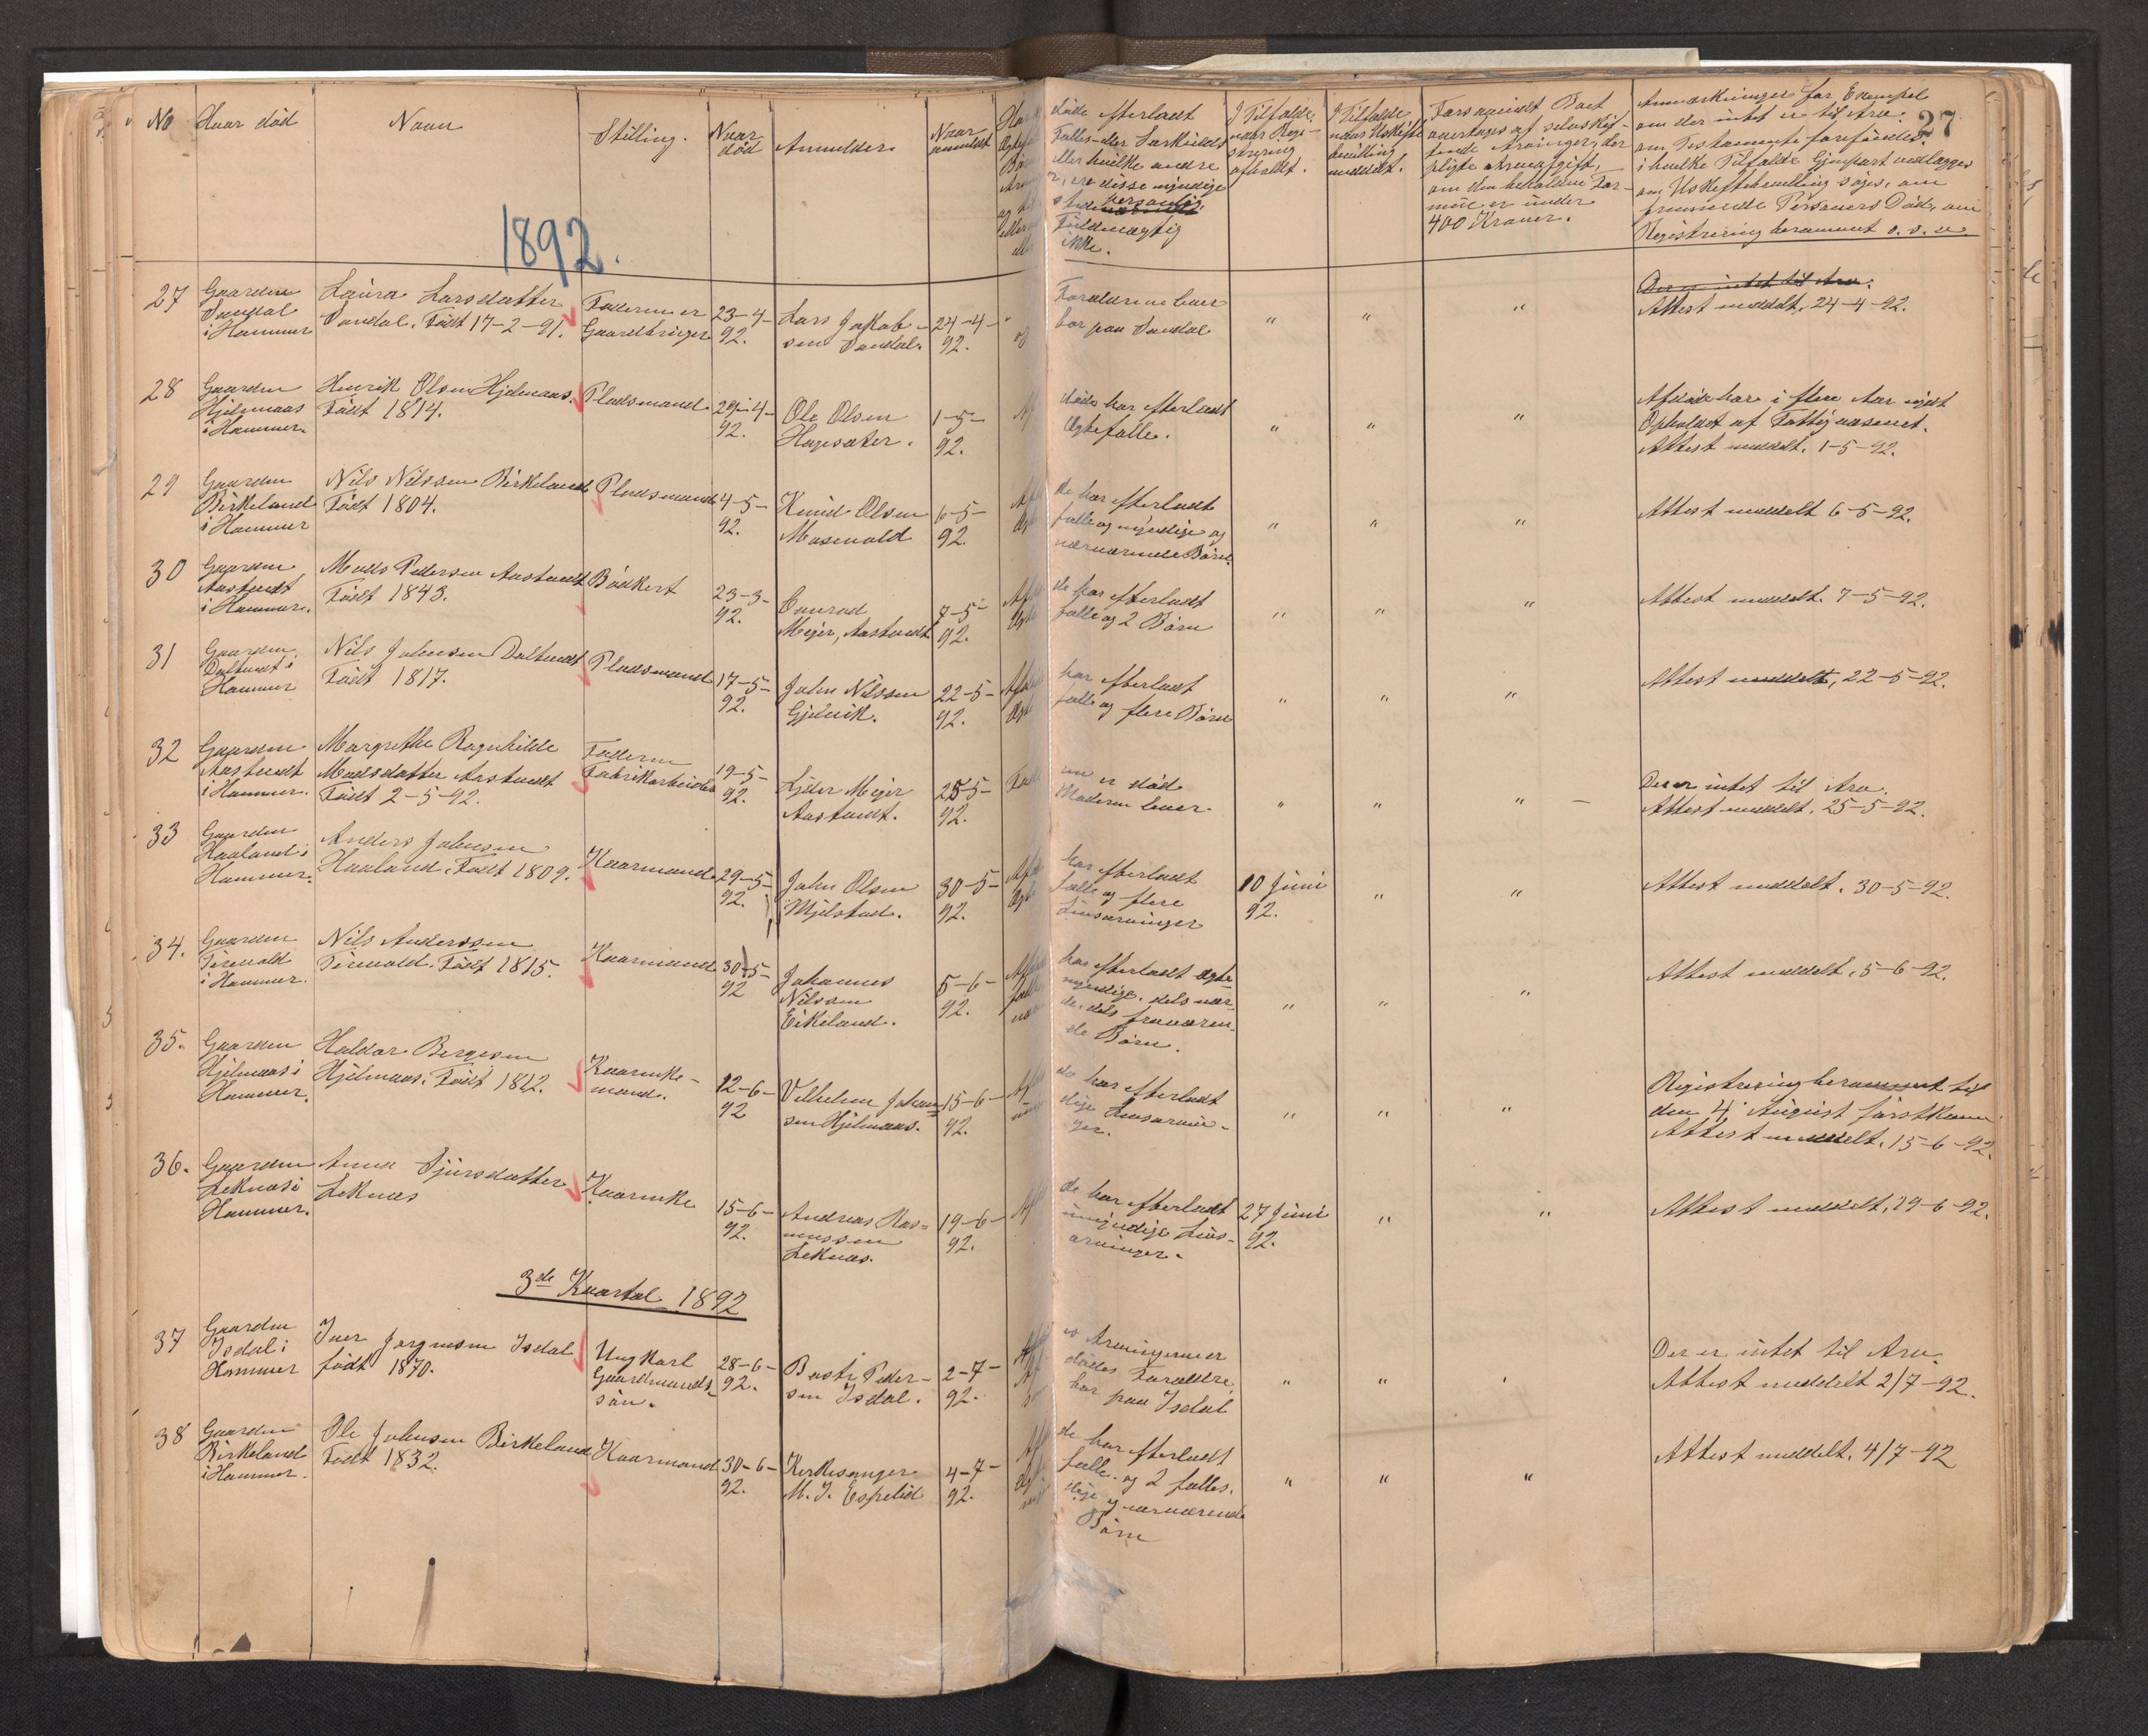 No
Hvor död
Navn
Stilling.
Naar
död
Anmelder
Naar
anmeldt
döde efterladt
Fælles- eller Særkuldsbörn
eller hvilke andre
er disse myndige
personlig
Fuldmægtig
ikke.
I Tilfælde,
naar Regi-
strering
afholdt.
I Tilfælde
naar Uskifte
bevilling
meddelt.
Forsaavidt Boet
overtages af selvskif-
tende Arvinger, der
pligte Arveafgift,
om den beholdne For-
mue er under
400 Kroner.
Anmærkninger for Exempel
om der intet er til Arv.
om Testamente forefindes
i hvilke Tilfælde Gjenpart vedlægges
om Uskiftebevilling söges, om
fraværende Personers Död, om
Registrering berammet o. s. v.
27
1892.
27
Gaarden
Tandal
i Hammer
Laura Larsdatter
Tandal. Födt 17-2-91.
Faderen er
Gaardbruger
23-4-
92.
Lars Jakob-
sen Tandal.
24-4-
92.
og
Forældrene lever
bor paa Tandal
" " "
Der er intet til Arv.
Attest meddelt. 24-4-92.
28
Gaarden
Hjelmaas
i Hammer
Henrik Olsen Hjelmaas.
Födt 1814.
Pladsmand
29-4-
92.
Ole Olsen
Hagesæter.
1-5-
92.
Af
döde har efterladt
Ægtefælle.
" " "
Afdöde har i flere Aar nydt
Ophold af Fattigvæsenet.
Attest meddelt. 1-5-92.
29
Gaarden
Birkeland
i Hammer
Nils Nilssen Birkeland
Födt 1804.
Pladsmand
4-5-
92.
Knud Olsen
Mosevold
6-5-
92.
de har efterladt
fælle og myndige og
nærværende Börn.
" " "
Attest meddelt 6-5-92.
30
Gaarden
Aastvedt
i Hammer.
Mads Pedersen Aastvedt
Födt 1843.
Bödkert
23-3-
92.
Conrad
Mejer, Aastvedt
7-5-
92.
de har efterladt
fælle og 2 Börn
" " "
Attest meddelt. 7-5-92.
31
Gaarden
Daltvedt i
Hammer
Nils Johnsen Daltvedt
Födt 1817.
Pladsmand
17-5-
92.
John Nilssen
Gjelvik.
22-5-
92.
har efterladt
fælle og flere Börn
" " "
Attest meddelt, 22-5-92.
32
Gaarden
Aastvedt
i Hammer.
Margrethe Ragnhilde
Madsdatter Aastvedt
Födt 2-5-92.
Faderen
Fabrikarbeider
19-5-
92.
Mejer
Aastvedt.
25-5-
92.
Fade
ren er död
Moderen lever.
" " "
Der er intet til Arv.
Attest meddelt. 25-5-92.
33
Gaarden
Haaland i
Hammer.
Anders Johnsen
Haaland. Födt 1809.
Kaarmand
29-5-
92.
John Olsen
Mjelstad.
30-5-
92.
har efterladt
fælle og flere
Livsarvinger
10 Juni
92.
" "
Attest meddelt. 30-5-92.
34.
Gaarden
Tirevold
i Hammer.
Nils Anderssen
Tirevold. Födt 1815.
Kaarmand
30-5-
92
Johannes
Nilssen
Eikeland.
5-6-
92.
har efterladt Ægte
myndige. dels nær-
de, dels fraværen-
de Börn.
" " "
Attest meddelt, 5-6-92.
35.
Gaarden
Hjelmaas i
Hammer.
Haldor Bergesen
Hjelmaas. Födt 1822.
Kaarenke-
mand.
12-6-
92
Vilhelm Johan-
sen Hjelmaas.
15-6-
92.
de har efterladt
dige Livsarvin-
ger.
" " "
Registrering berammet til
den 4 August förstkomm.
Attest meddelt. 15-6-92.
36.
Gaarden
Leknæs i
Hammer.
Anna Sjursdatter
Leknæs
Kaarenke
15-6-
92.
Andreas Ras-
mussen
Leknæs.
19-6-
92.
Af
de har efterladt
umyndige Livs-
arvinger.
27 Juni
92.
" "
Attest meddelt, 19-6-92.
3de Kvartal 1892
37
Gaarden
Isdal i
Hammer
Iver Jørgensen Isdal
födt 1870.
Ungkarl
Gaardmands
sön.
28-6-
92.
Basti Peder-
sen Isdal.
2-7-
92.
Arvingerne er
dödes Forældre,
bor paa Isdal
" "
Der er intet til Arv.
Attest meddelt 2/7-92.
38
Gaarden
Birkeland
i Hammer.
Ole Johnsen Birkeland
Födt 1832.
Kaarmand
30-6-
92.
Kirkesanger
M. J. Espelid
4-7-
92.
de har efterladt
fælle. og 2 fælles.
dige og nærværende
Börn
" " "
Attest meddelt. 4/7-92